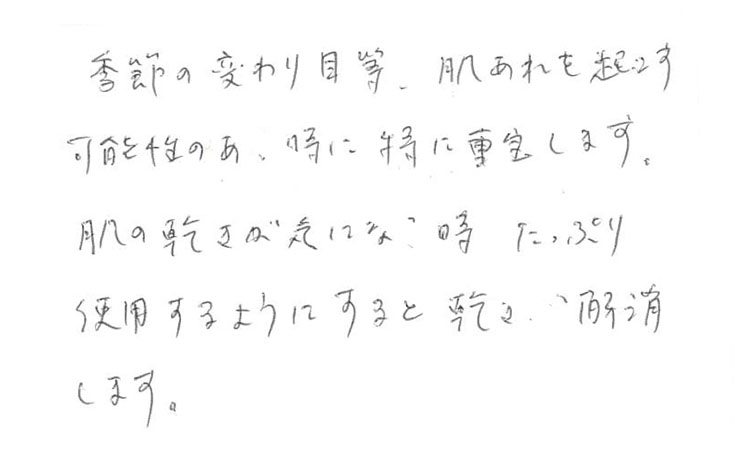 季節の変わり目等、肌あれを起こす
可能性のある時に特に重宝します。
肌の乾きが気になる時 たっぷり
使用するようにすると乾きが解消
します。